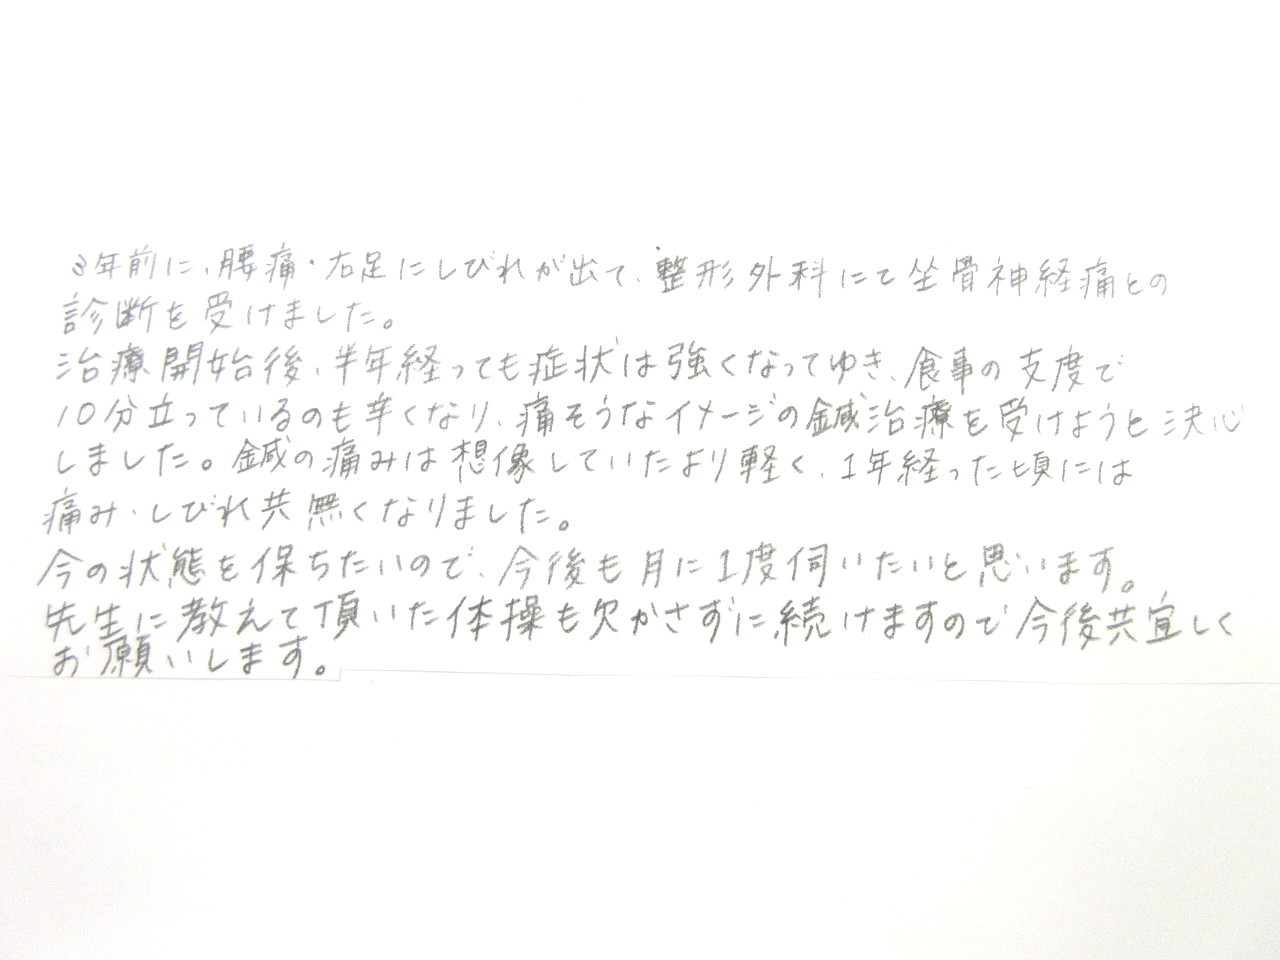 3年前に、腰痛・右足にしびれが出て、整形外科にて坐骨神経痛との
診断を受けました。
治療開始後、半年経っても症状は強くなってゆき、食事の支度で
10分立っているのも辛くなり、痛そうなイメージの鍼治療を受けようと決心
しました。鍼の痛みは想像していたより軽く、1年経った頃には
痛み・しびれ共無くなりました。
今の状態を保ちたいので、今後も月に1度伺いたいと思います。
先生に教えて頂いた体操も欠かさずに続けますので今後共宜しく
お願いします。